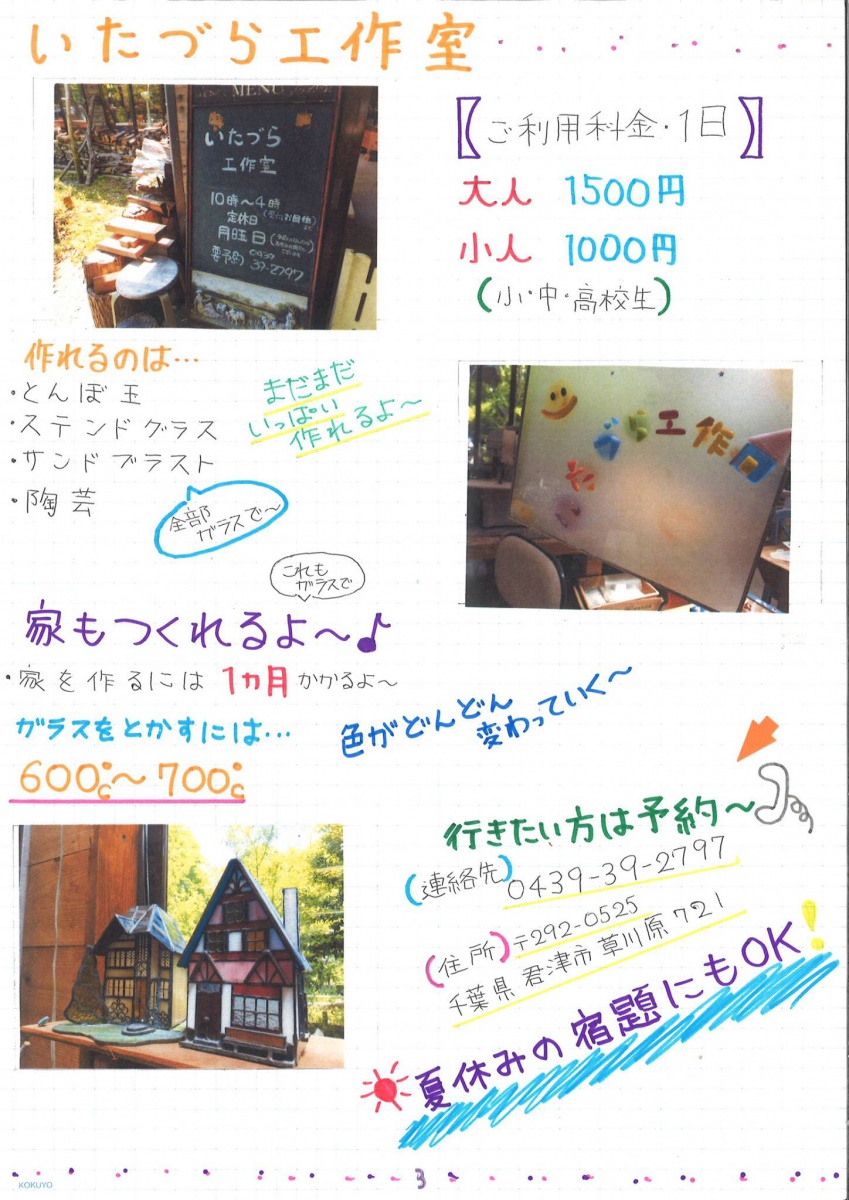 いたづら工作室
MENU
いたづら
工作室
10時～4時
定休日
月旺日
要予約
0439
39-2797
【ご利用料金・1日】
大人 1500円
小人 1000円
(小・中・高校生)
作れるのは…
・とんぼ玉
・ステンドグラス
・サンドブラスト
・陶芸
まだまだ
いっぱい
作れるよ～
全部
ガラスで～
工作
これも
ガラスで
家もつくれるよ～♪
・家を作るには 1カ月 かかるよ～
ガラスをとかすには…
600℃～700℃
色がどんどん
変わっていく～
行きたい方は予約～
(連絡先) 0439-39-2797
(住所) 〒292-0525
千葉県 君津市 草川原 721
夏休みの宿題にもOK!
KOKUYO
3